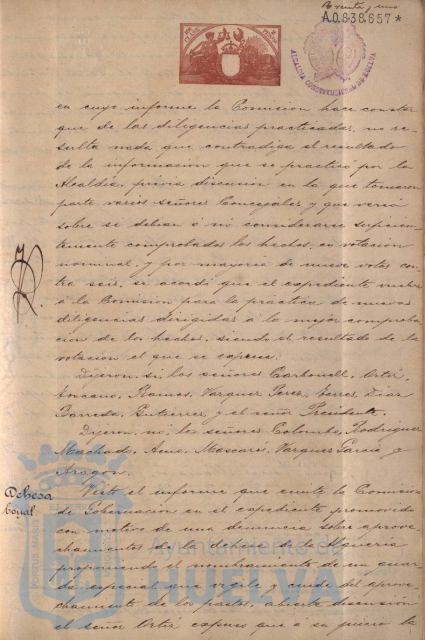 A.0.838.657*
ALCALDIA CONSTITUCIONAL DE HUELVA
en cuyo informe la Comision hace constar
que de las diligencias practicadas, no re-
sulta nada que contradiga el resultado
de la informacion que se practicó por la
Alcaldía, previa discusion en la que tomaron
parte varios señores Concejales y que versó
sobre si debian ó no considerarse suficien-
temente comprobados los hechos, en votacion
nominal, y por mayoria de nueve votos con-
tra seis, se acordó que el expediente vuelva
á la Comision para la práctica de nuevas
diligencias dirigidas á la mejor comproba-
cion de los hechos, siendo el resultado de la
votacion el que se expresa.
Dijeron, si, los señores Carbonell, Ortiz,
Ramos, Vazquez Perez, Torres, Diaz
Barreda, Gutierrez, y el señor Presidente.
Dijeron, no, los señores Colombo, Rodriguez
Machado, Mascaros, Vazquez Garcia y
Aragon.
Dehesa
boyal.
Visto el informe que emite la Comision
de Gobernacion en el expediente promovido
con motivo de una denuncia sobre aprove-
chamientos de la dehesa de la Alquería
proponiendo el nombramiento de un guar-
da especial que vigile y cuide del aprove-
chamiento de los pastos, abierta discusión
el señor Ortiz expuso que á su juicio la
Ayuntamiento de
HUELVA